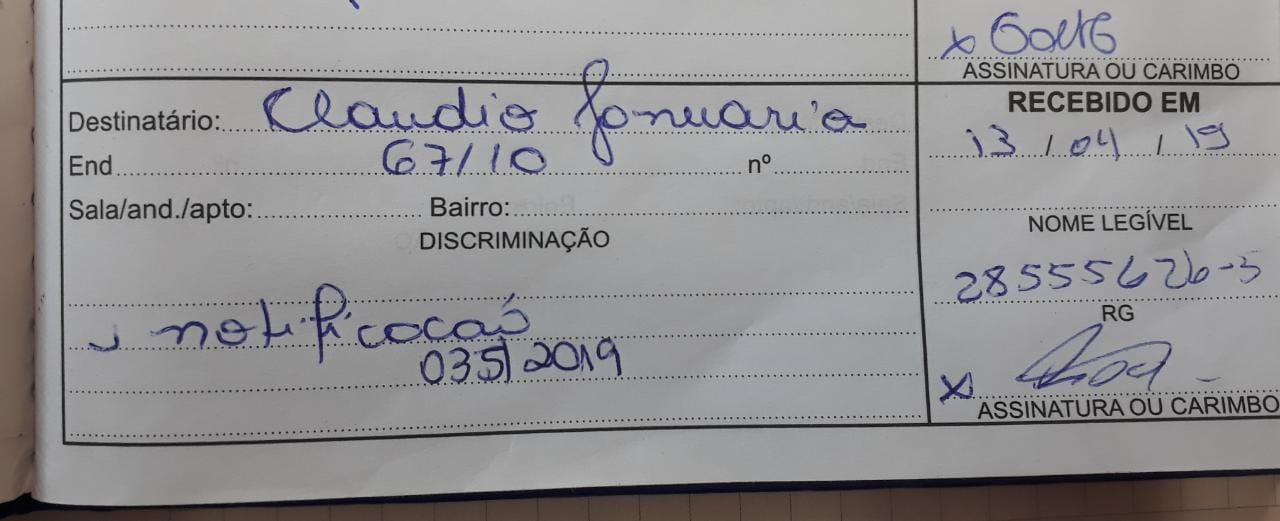 ASSINATURA OU CARIMBO
Destinatário: Claudio Januaria
End 67/10 nº
Sala/and./apto: Bairro:
DISCRIMINAÇÃO
notificocaó
035/2019
RECEBIDO EM
13 / 04 / 19
NOME LEGÍVEL
28555626-5
RG
X
ASSINATURA OU CARIMBO